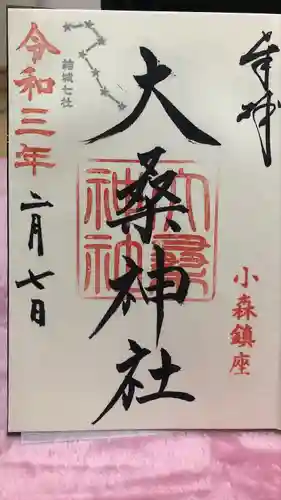 奉拝
小森鎮座
大桑神社
大桑神社
結城七社
令和三年
二月七日